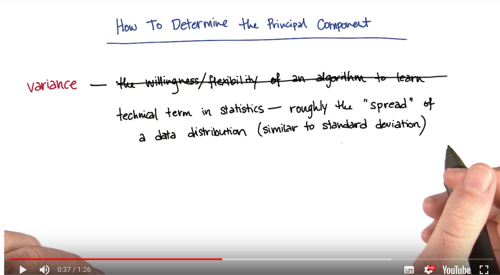 How To Determine the Principal Component
variance — the willingness/flexibility of an algorithm to learn
technical term in statistics — roughly the "spread" of
a data distribution (similar to standard deviation)
0:37 / 1:26
YouTube